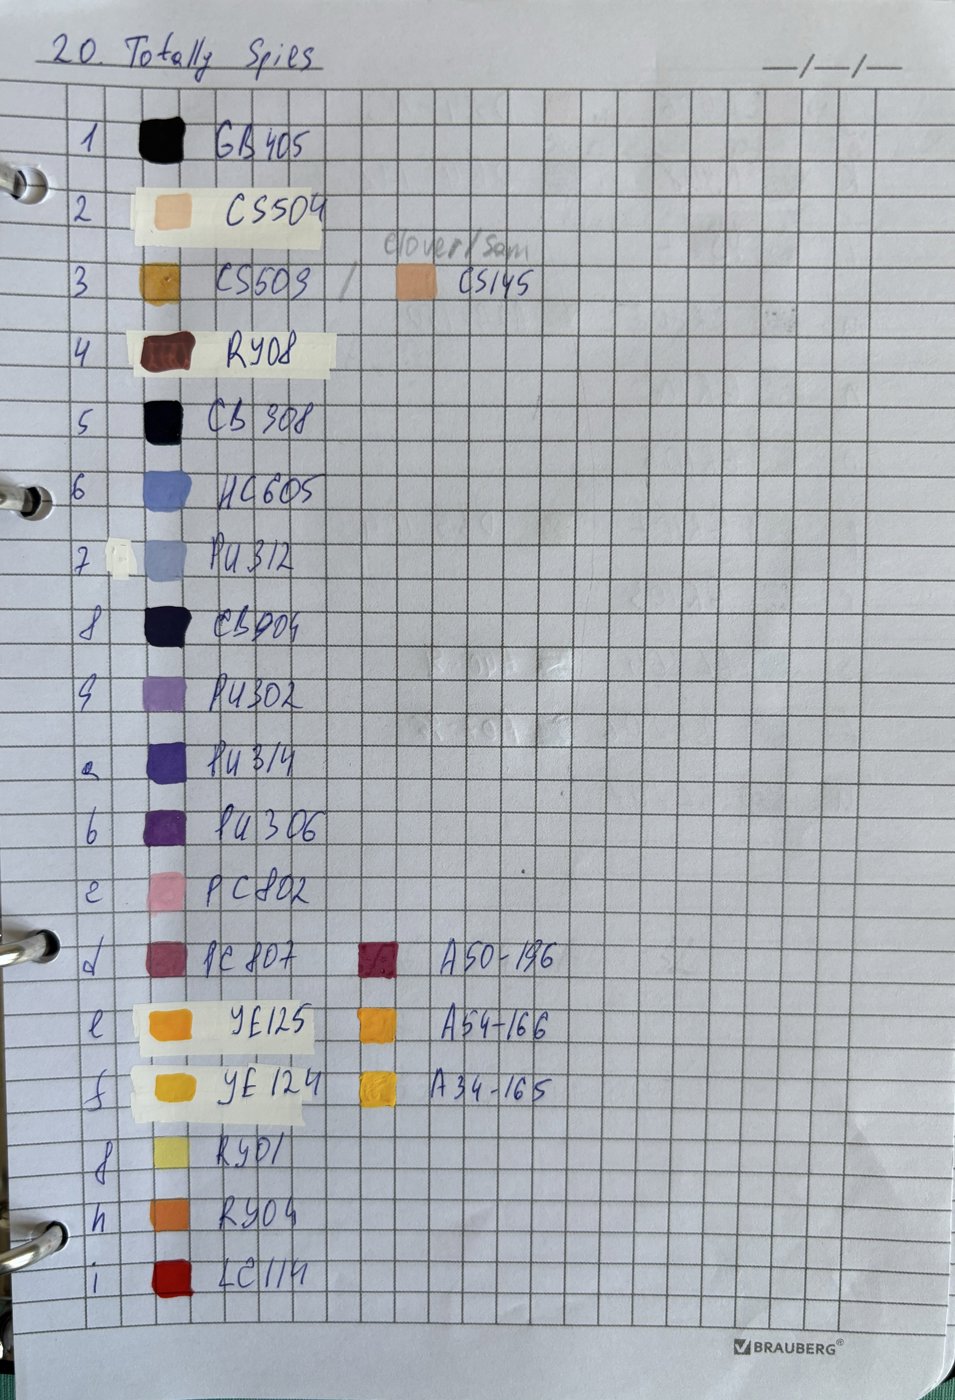 20. Totally Spies
__/__/__
1 GB405
2 CS504
clover/Sam
3 CS509 / CS145
4 RY08
5 CB308
6 HC605
7 PU312
8 CB904
9 PU302
a PU314
b PU306
c PC802
d PC807 A50-196
e YE125 A54-166
f YE124 A34-165
g RY01
h RY04
i LC114
BRAUBERG®